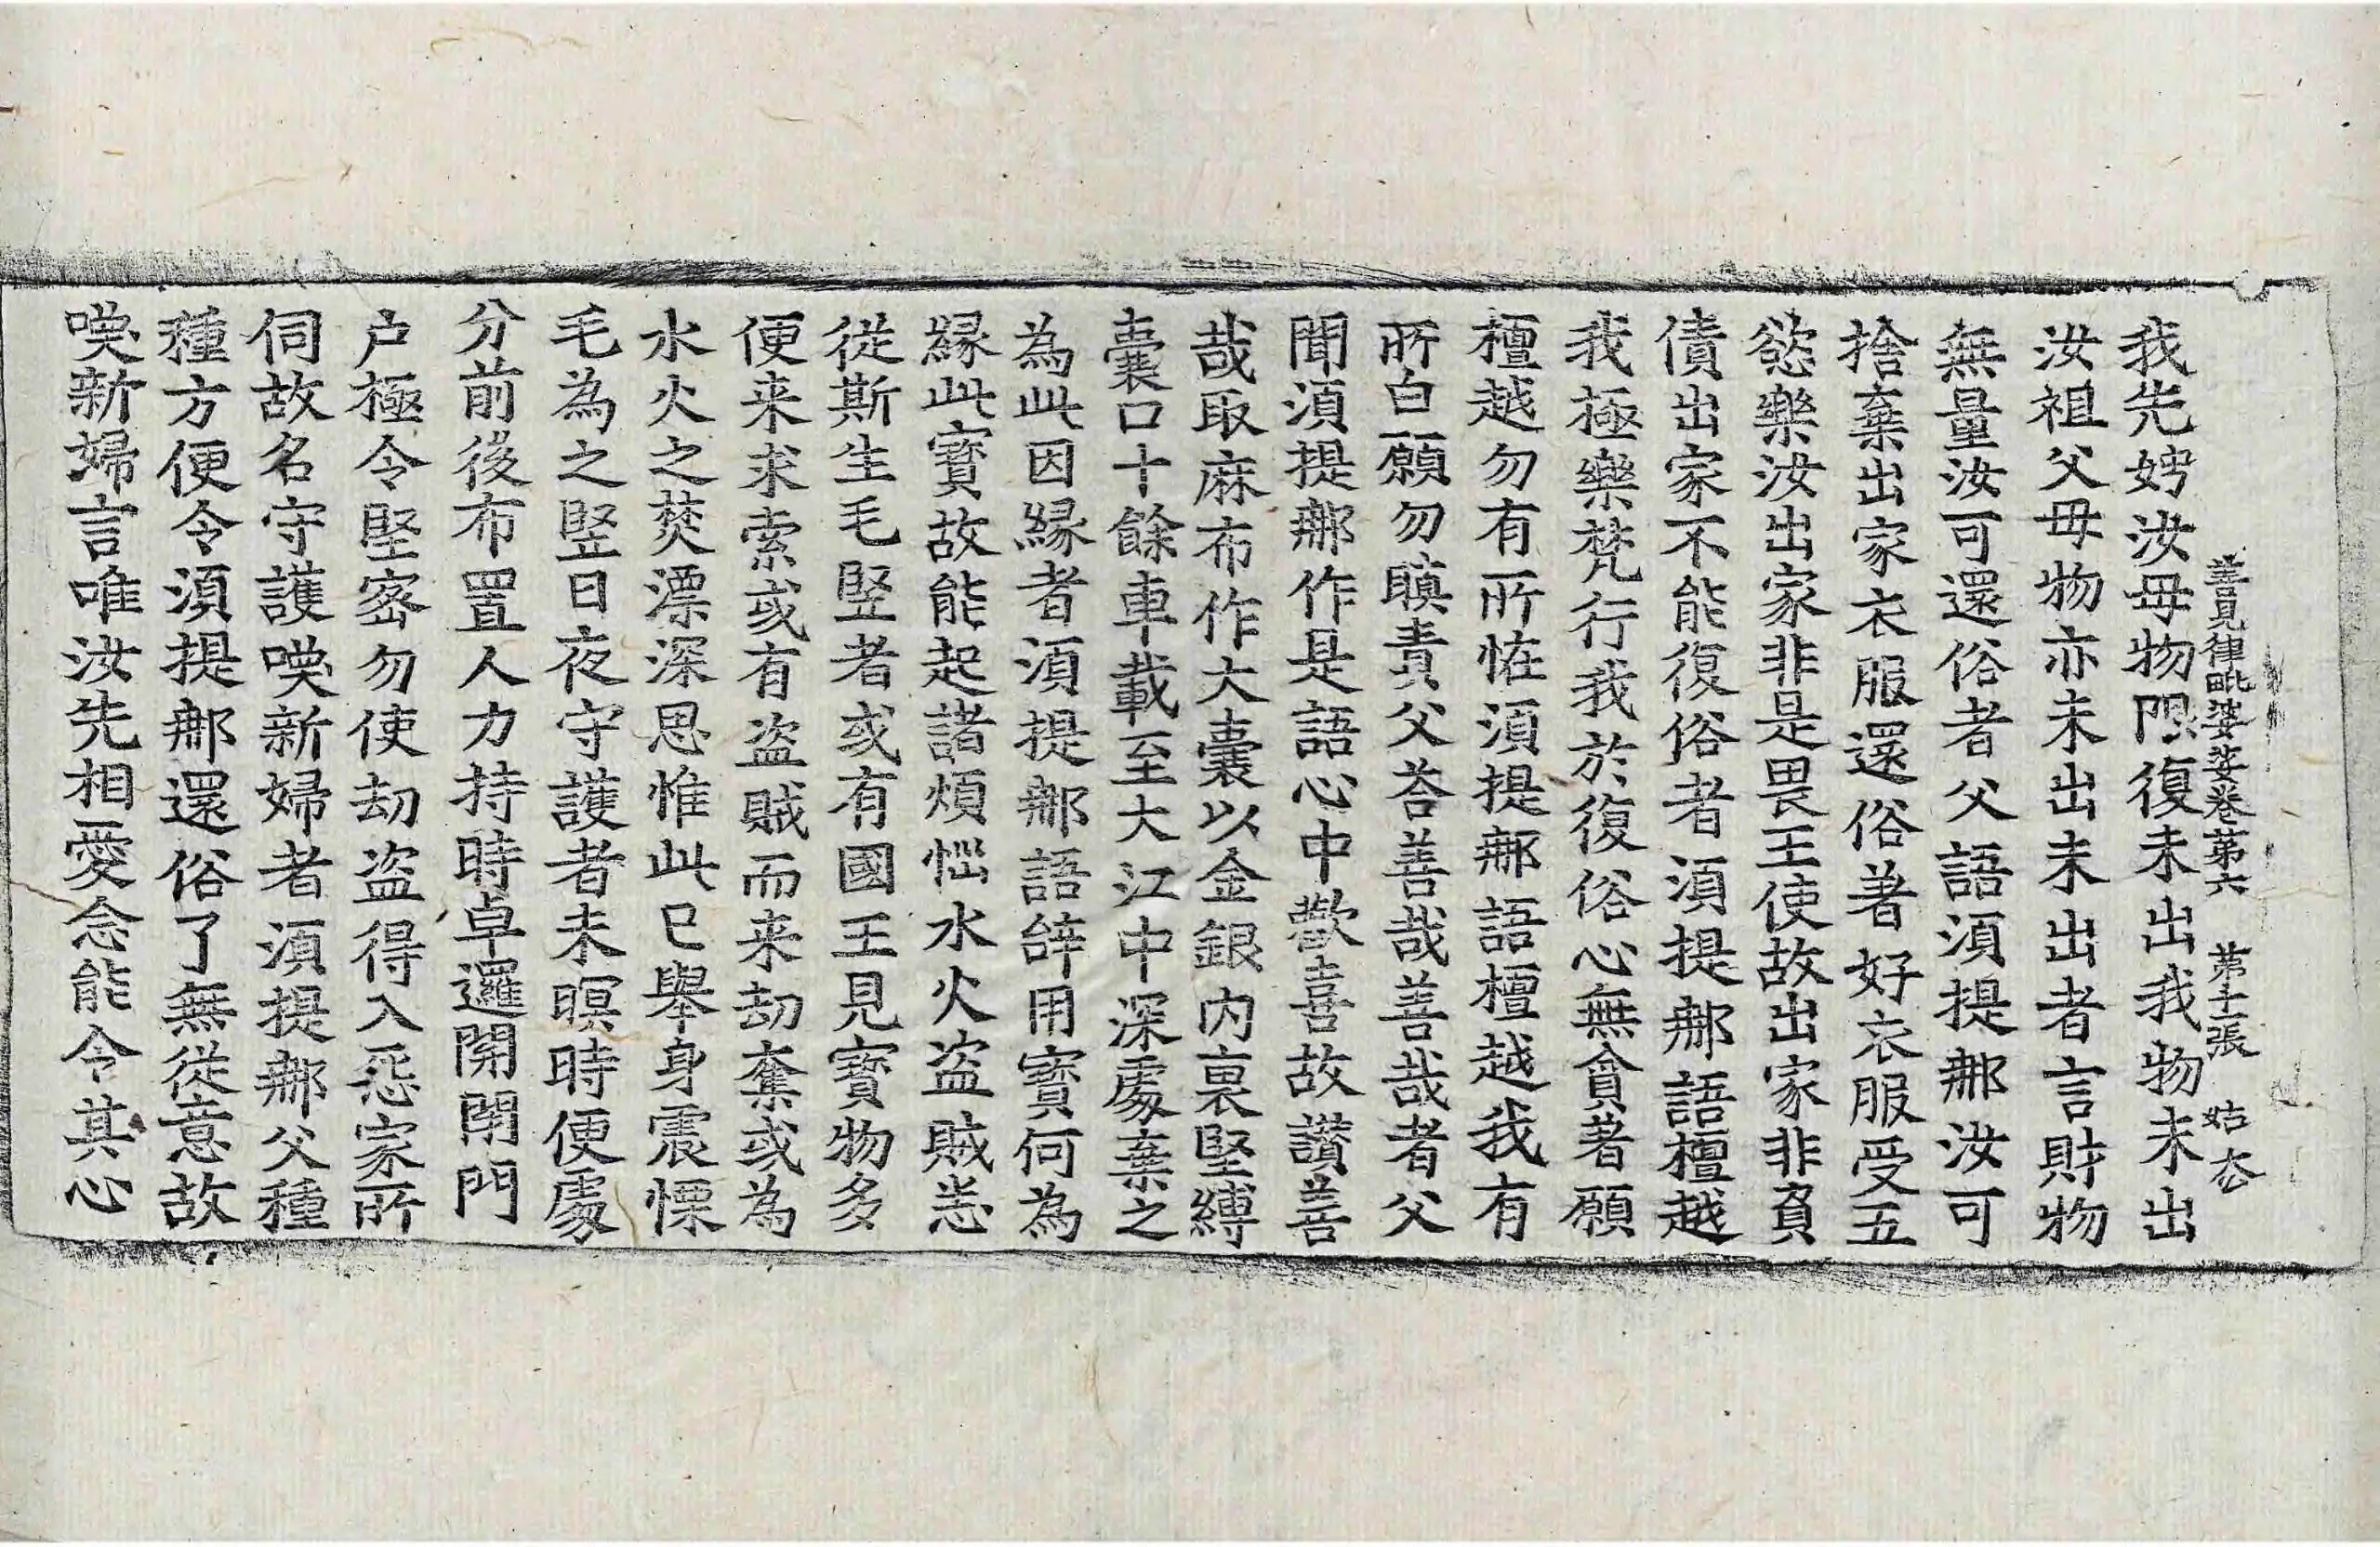 善見律毗婆娑卷第六 第十二張 姑
我先娉汝母物限復未出我物未出
汝祖父母物亦未出未出者言財物
無量汝可還俗者父語湏提𨚗汝可
捨棄出家衣服還俗著好衣服受五
慾樂汝出家非是畏王使故出家非負
債出家不能復俗者湏提𨚗語檀越
我極樂梵行我於復俗心無貪著願
檀越勿有所恠湏提𨚗語檀越我有
所白願勿瞋責父荅善哉善哉者父
聞湏提𨚗作是語心中歡喜故讃善
哉取麻布作大囊以金銀內裏堅縛
囊口十餘車載至大江中深處棄之
為此因縁者湏提𨚗語辝用寶何為
縁此寶故能起諸煩惱水火盗賊恙
從斯生毛竪者或有國王見寶物多
便来求索或有盗賊而来劫奪或為
水火之焚漂深思惟此已舉身震慄
毛為之竪日夜守護者未暝時便處
分前後布置人力持時卓邏開閇門
户極令堅宻勿使劫盗得入惡家所
伺故名守護喚新婦者湏提𨚗父種
種方便令湏提𨚗還俗了無從意故
喚新婦言唯汝先相愛念能令其心